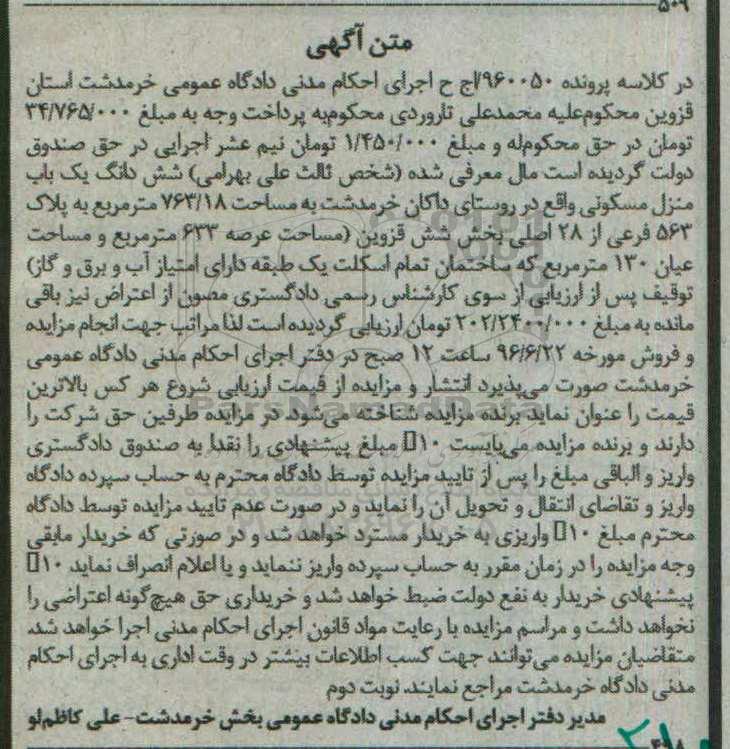 ۵۰۹
متن آگهی
در کلاسه پرونده ۹۶۰۰۵۰/اج ح اجرای احکام مدنی دادگاه عمومی خرمدشت استان
قزوین محکوم‌علیه محمدعلی تاروردی محکوم‌به پرداخت وجه به مبلغ ۳۴/۷۶۵/۰۰۰
تومان در حق محکوم‌له و مبلغ ۱/۴۵۰/۰۰۰ تومان نیم عشر اجرایی در حق صندوق
دولت گردیده است مال معرفی شده (شخص ثالث علی بهرامی) شش دانگ یک باب
منزل مسکونی واقع در روستای داکان خرمدشت به مساحت ۷۶۳/۱۸ مترمربع به پلاک
۵۶۳ فرعی از ۲۸ اصلی بخش شش قزوین (مساحت عرصه ۶۳۳ مترمربع و مساحت
عیان ۱۳۰ مترمربع که ساختمان تمام اسکلت یک طبقه دارای امتیاز آب و برق و گاز)
توقیف پس از ارزیابی از سوی کارشناس رسمی دادگستری مصون از اعتراض نیز باقی
مانده به مبلغ ۲۰۲/۲۴۰۰/۰۰۰ تومان ارزیابی گردیده است لذا مراتب جهت انجام مزایده
و فروش مورخه ۹۶/۶/۲۲ ساعت ۱۲ صبح در دفتر اجرای احکام مدنی دادگاه عمومی
خرمدشت صورت می‌پذیرد انتشار و مزایده از قیمت ارزیابی شروع هر کس بالاترین
قیمت را عنوان نماید برنده مزایده شناخته می‌شود در مزایده طرفین حق شرکت را
دارند و برنده مزایده می‌بایست ۱۰▯ مبلغ پیشنهادی را نقدا به صندوق دادگستری
واریز و الباقی مبلغ را پس از تایید مزایده توسط دادگاه محترم به حساب سپرده دادگاه
واریز و تقاضای انتقال و تحویل آن را نماید و در صورت عدم تایید مزایده توسط دادگاه
محترم مبلغ ۱۰▯ واریزی به خریدار مسترد خواهد شد و در صورتی که خریدار مابقی
وجه مزایده را در زمان مقرر به حساب سپرده واریز ننماید و یا اعلام انصراف نماید ۱۰▯
پیشنهادی خریدار به نفع دولت ضبط خواهد شد و خریداری حق هیچ‌گونه اعتراضی را
نخواهد داشت و مراسم مزایده با رعایت مواد قانون اجرای احکام مدنی اجرا خواهد شد.
متقاضیان مزایده می‌توانند جهت کسب اطلاعات بیشتر در وقت اداری به اجرای احکام
مدنی دادگاه خرمدشت مراجع نمایند. نوبت دوم
مدیر دفتر اجرای احکام مدنی دادگاه عمومی بخش خرمدشت- علی کاظم‌لو